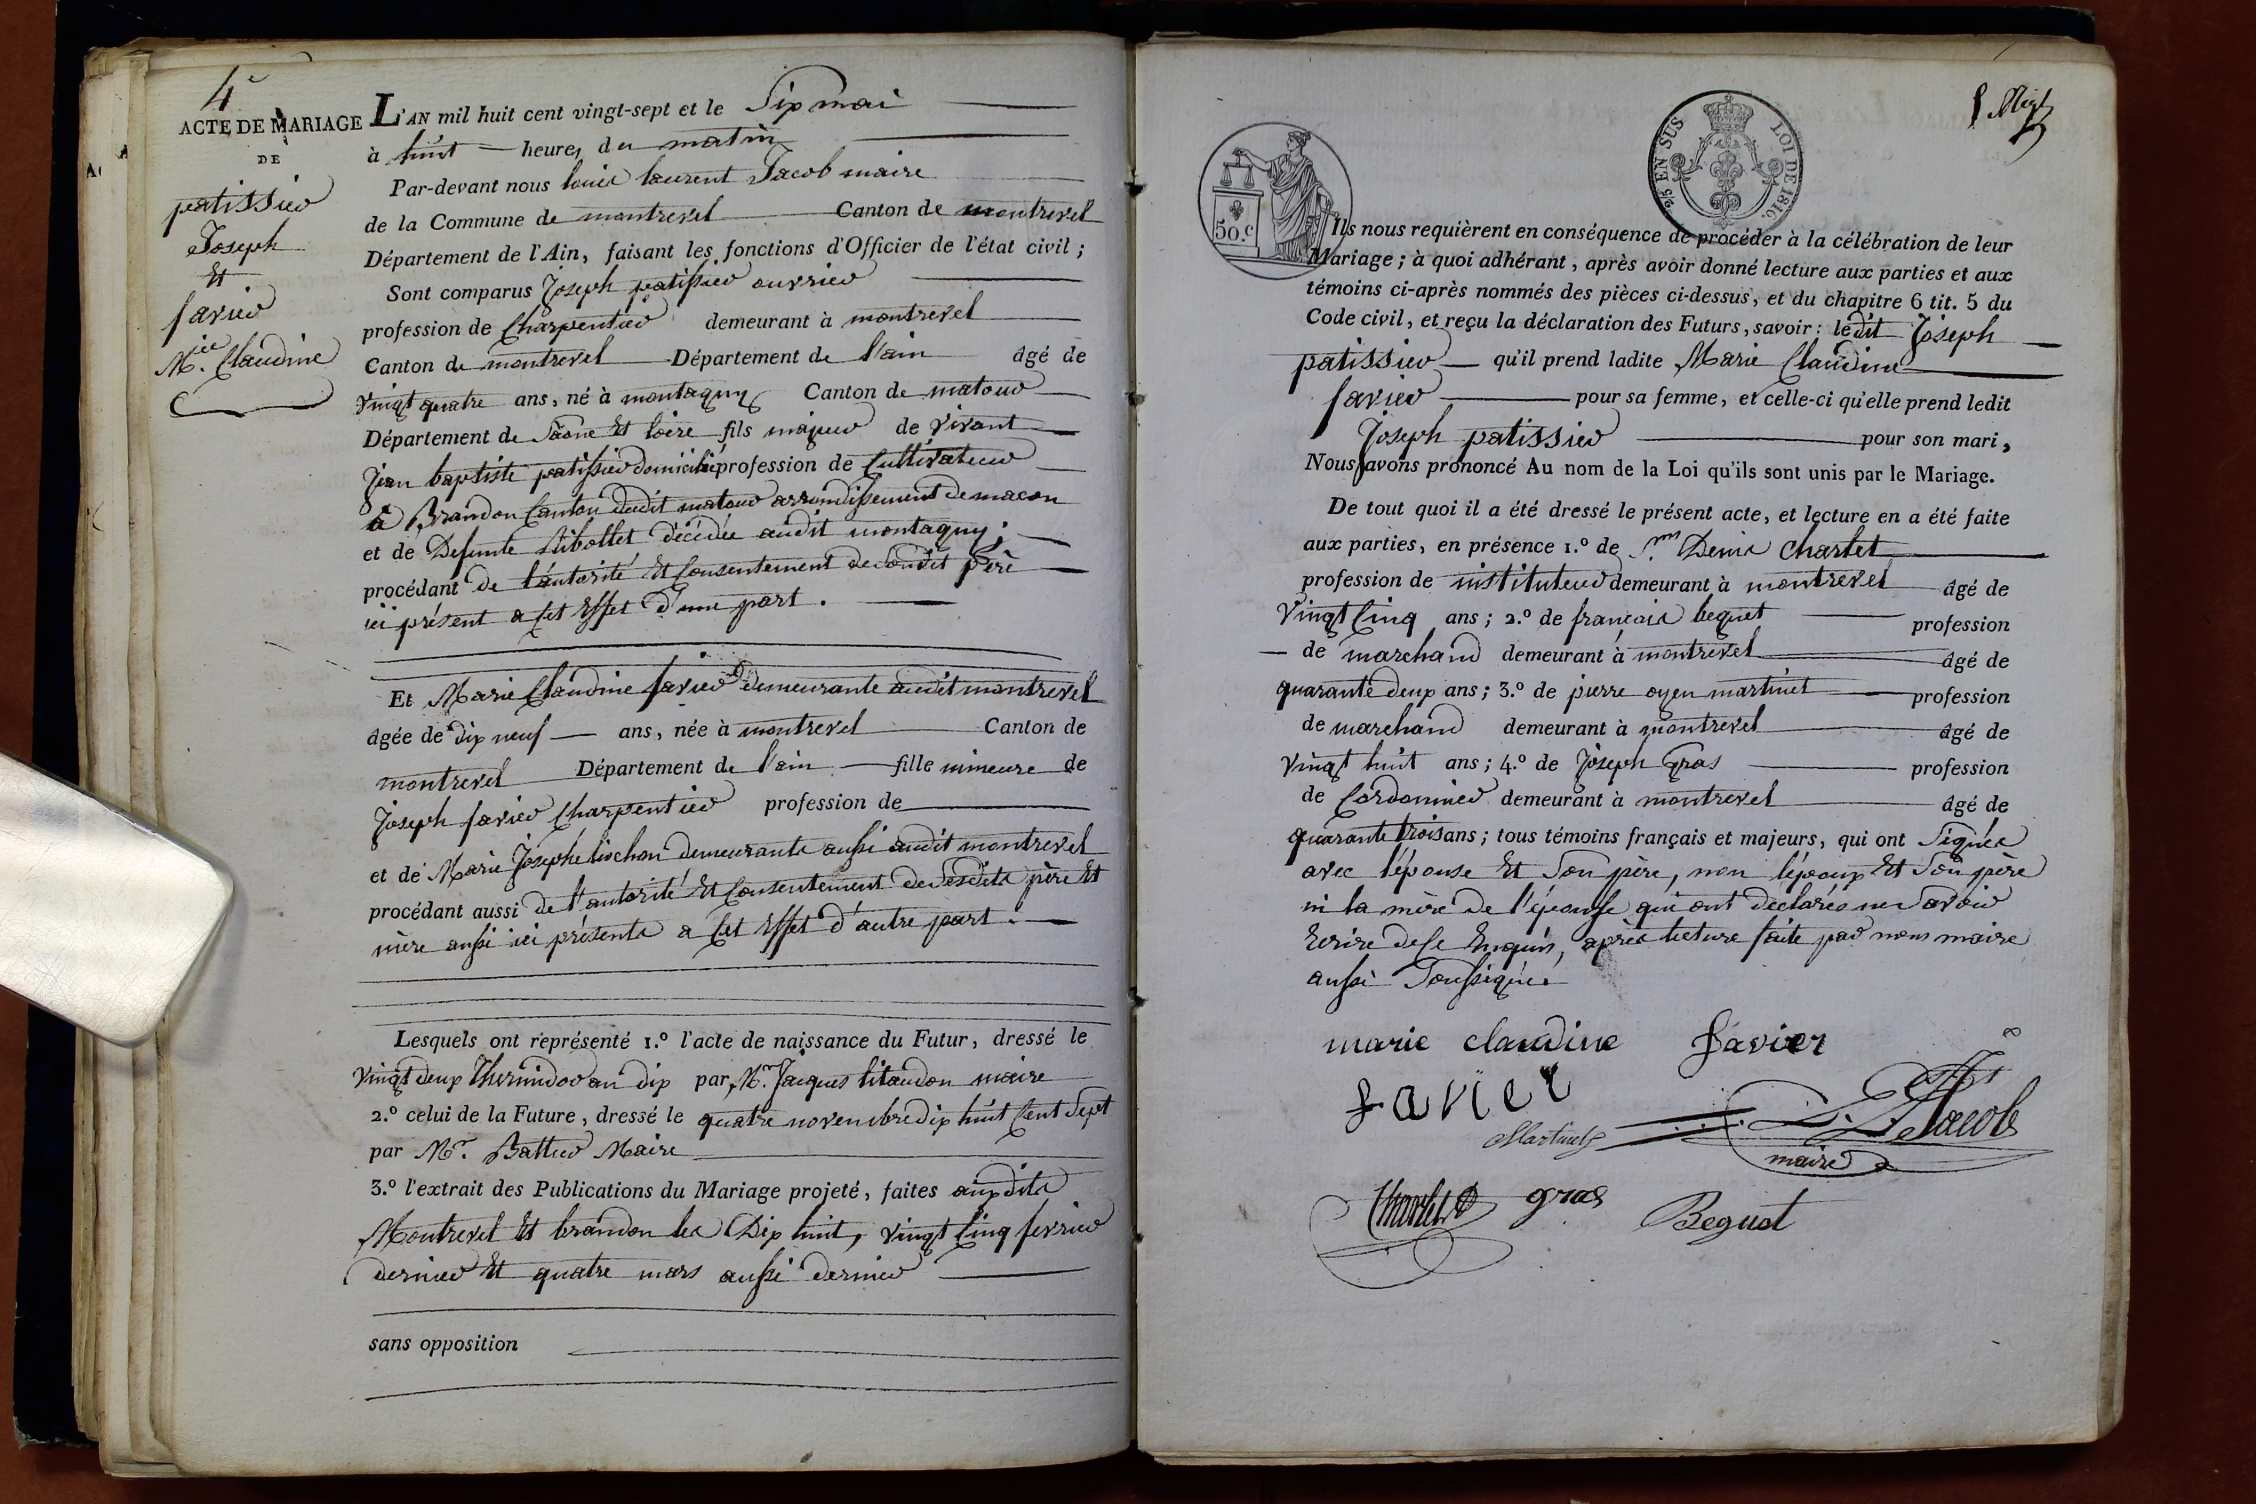 4e
ACTE DE MARIAGE
DE
patissier
Joseph
Et
favier
Mie. Claudine
L'AN mil huit cent vingt-sept et le Six mai
à huit heures du matin
Par-devant nous louis laurent Jacob maire
de la Commune de montrevel Canton de montrevel
Département de l'Ain, faisant les fonctions d'Officier de l'état civil ;
Sont comparus Joseph patissier ouvrier
profession de Charpentier demeurant à montrevel
Canton de montrevel Département de l'ain âgé de
vingt quatre ans, né à montagny Canton de matour
Département de Saone Et loire fils majeur de vivant
Jean baptiste patissier domicilié profession de Cultivateur
à Brandon Canton dudit matour arrondissement de macon
et de Defunte Libollet décédée audit montagny ;
procédant de l'autorité Et Consentement de Sondit père
ici présent a Cet Effet d'une part .
Et Marie Claudine favier demeurante audit montrevel
âgée de dix neuf ans, née à montrevel Canton de
montrevel Département de l'ain fille mineure de
Joseph favier Charpentier profession de
et de Marie Josephe liochon demeurants aussi audit montrevel
procédant aussi de l'autorité Et Consentement de Sesdits père Et
mère aussi ici présents a Cet Effet d'autre part .
Lesquels ont représenté 1.º l'acte de naissance du Futur, dressé le
vingt deux thermidor an dix par, Mr. Jacques litaudon maire
2.º celui de la Future, dressé le quatre novembre dix huit Cent Sept
par Mr. Battur Maire
3.º l'extrait des Publications du Mariage projeté, faites auxdits
Montrevel Et brandon les Dix huit, vingt Cinq fevrier
dernier Et quatre mars aussi dernier
sans opposition
EN SUS
LOI DE 1816.
50.c
Ils nous requièrent en conséquence de procéder à la célébration de leur
Mariage ; à quoi adhérant, après avoir donné lecture aux parties et aux
témoins ci-après nommés des pièces ci-dessus, et du chapitre 6 tit. 5 du
Code civil, et reçu la déclaration des Futurs, savoir : ledit Joseph
patissier qu'il prend ladite Marie Claudine
favier pour sa femme, et celle-ci qu'elle prend ledit
Joseph patissier pour son mari,
Nous avons prononcé Au nom de la Loi qu'ils sont unis par le Mariage.
De tout quoi il a été dressé le présent acte, et lecture en a été faite
aux parties, en présence 1.º de Denis Charlet
profession de instituteur demeurant à montrevel âgé de
vingt Cinq ans ; 2.º de françois beguet profession
de marchand demeurant à montrevel âgé de
quarante deux ans ; 3.º de pierre oyen martinet profession
de marchand demeurant à montrevel âgé de
vingt huit ans ; 4.º de Joseph Gras profession
de Cordonnier demeurant à montrevel âgé de
quarante trois ans ; tous témoins français et majeurs, qui ont Signés
avec l'épouse Et Son père, non l'époux Et Son père
ni la mère de l'épouse qui ont déclarés ne Savoir
Ecrire de Ce Enquis, après lecture faite par nous maire
aussi Soussigné.
marie claudine favier
favier
Martinet
Jacob
maire
Charlet
gras
Beguet